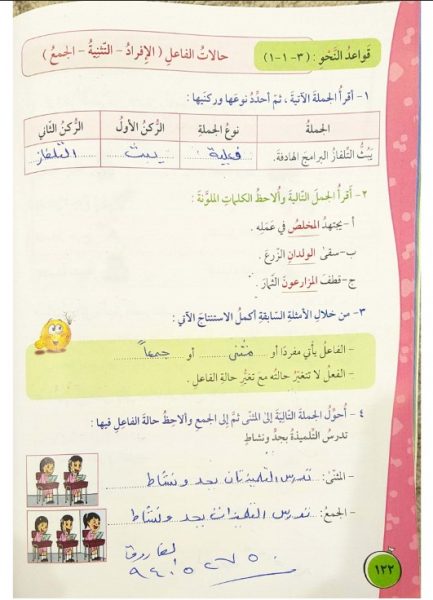 قواعدُ النَّحْوِ : (٣-١-١)
حالاتُ الفاعلِ ( الإفرادُ - التّثنِيةُ - الجمعُ )
١- أقرأُ الجملةَ الآتيةَ ، ثمّ أحدّدُ نوعَها وركنَيها :
الجملةُ نوعُ الجملةِ الرُّكنُ الأولُ الرُّكنُ الثّاني
يَبُثُّ التلفازُ البرامجَ الهادفةَ. فعلية يبث التلفاز
٢- أَقرأُ الجملَ التّاليةَ وألاحظُ الكلماتِ الملوّنةَ :
أ- يجتهدُ المخلصُ في عَمَلِهِ .
ب- سقىٰ الولدانِ الزّرعَ .
ج- قطفَ المزارعونَ الثّمارَ .
٣- من خلالِ الأمثلةِ السّابقةِ أكملُ الاستنتاجَ الآتي :
- الفاعلُ يأتي مفردًا أو مثنى أو جمعاً
- الفعلُ لا تتغيّرُ حالتُه معَ تغيُّرِ حالةِ الفاعلِ .
٤ - أُحوِّلُ الجملةَ التّاليةَ إلىٰ المثنى ثمَّ إلى الجمعِ وألاحِظُ حالةَ الفاعلِ فيها :
تدرسُ التلميذةُ بجدٍّ ونشاطٍ
- المثنّىٰ: تدرس التلميذتان بجد ونشاط
- الجمعُ: تدرس التلميذات بجد ونشاط
٩٤٠٥٢٧٥٠
١٢٢